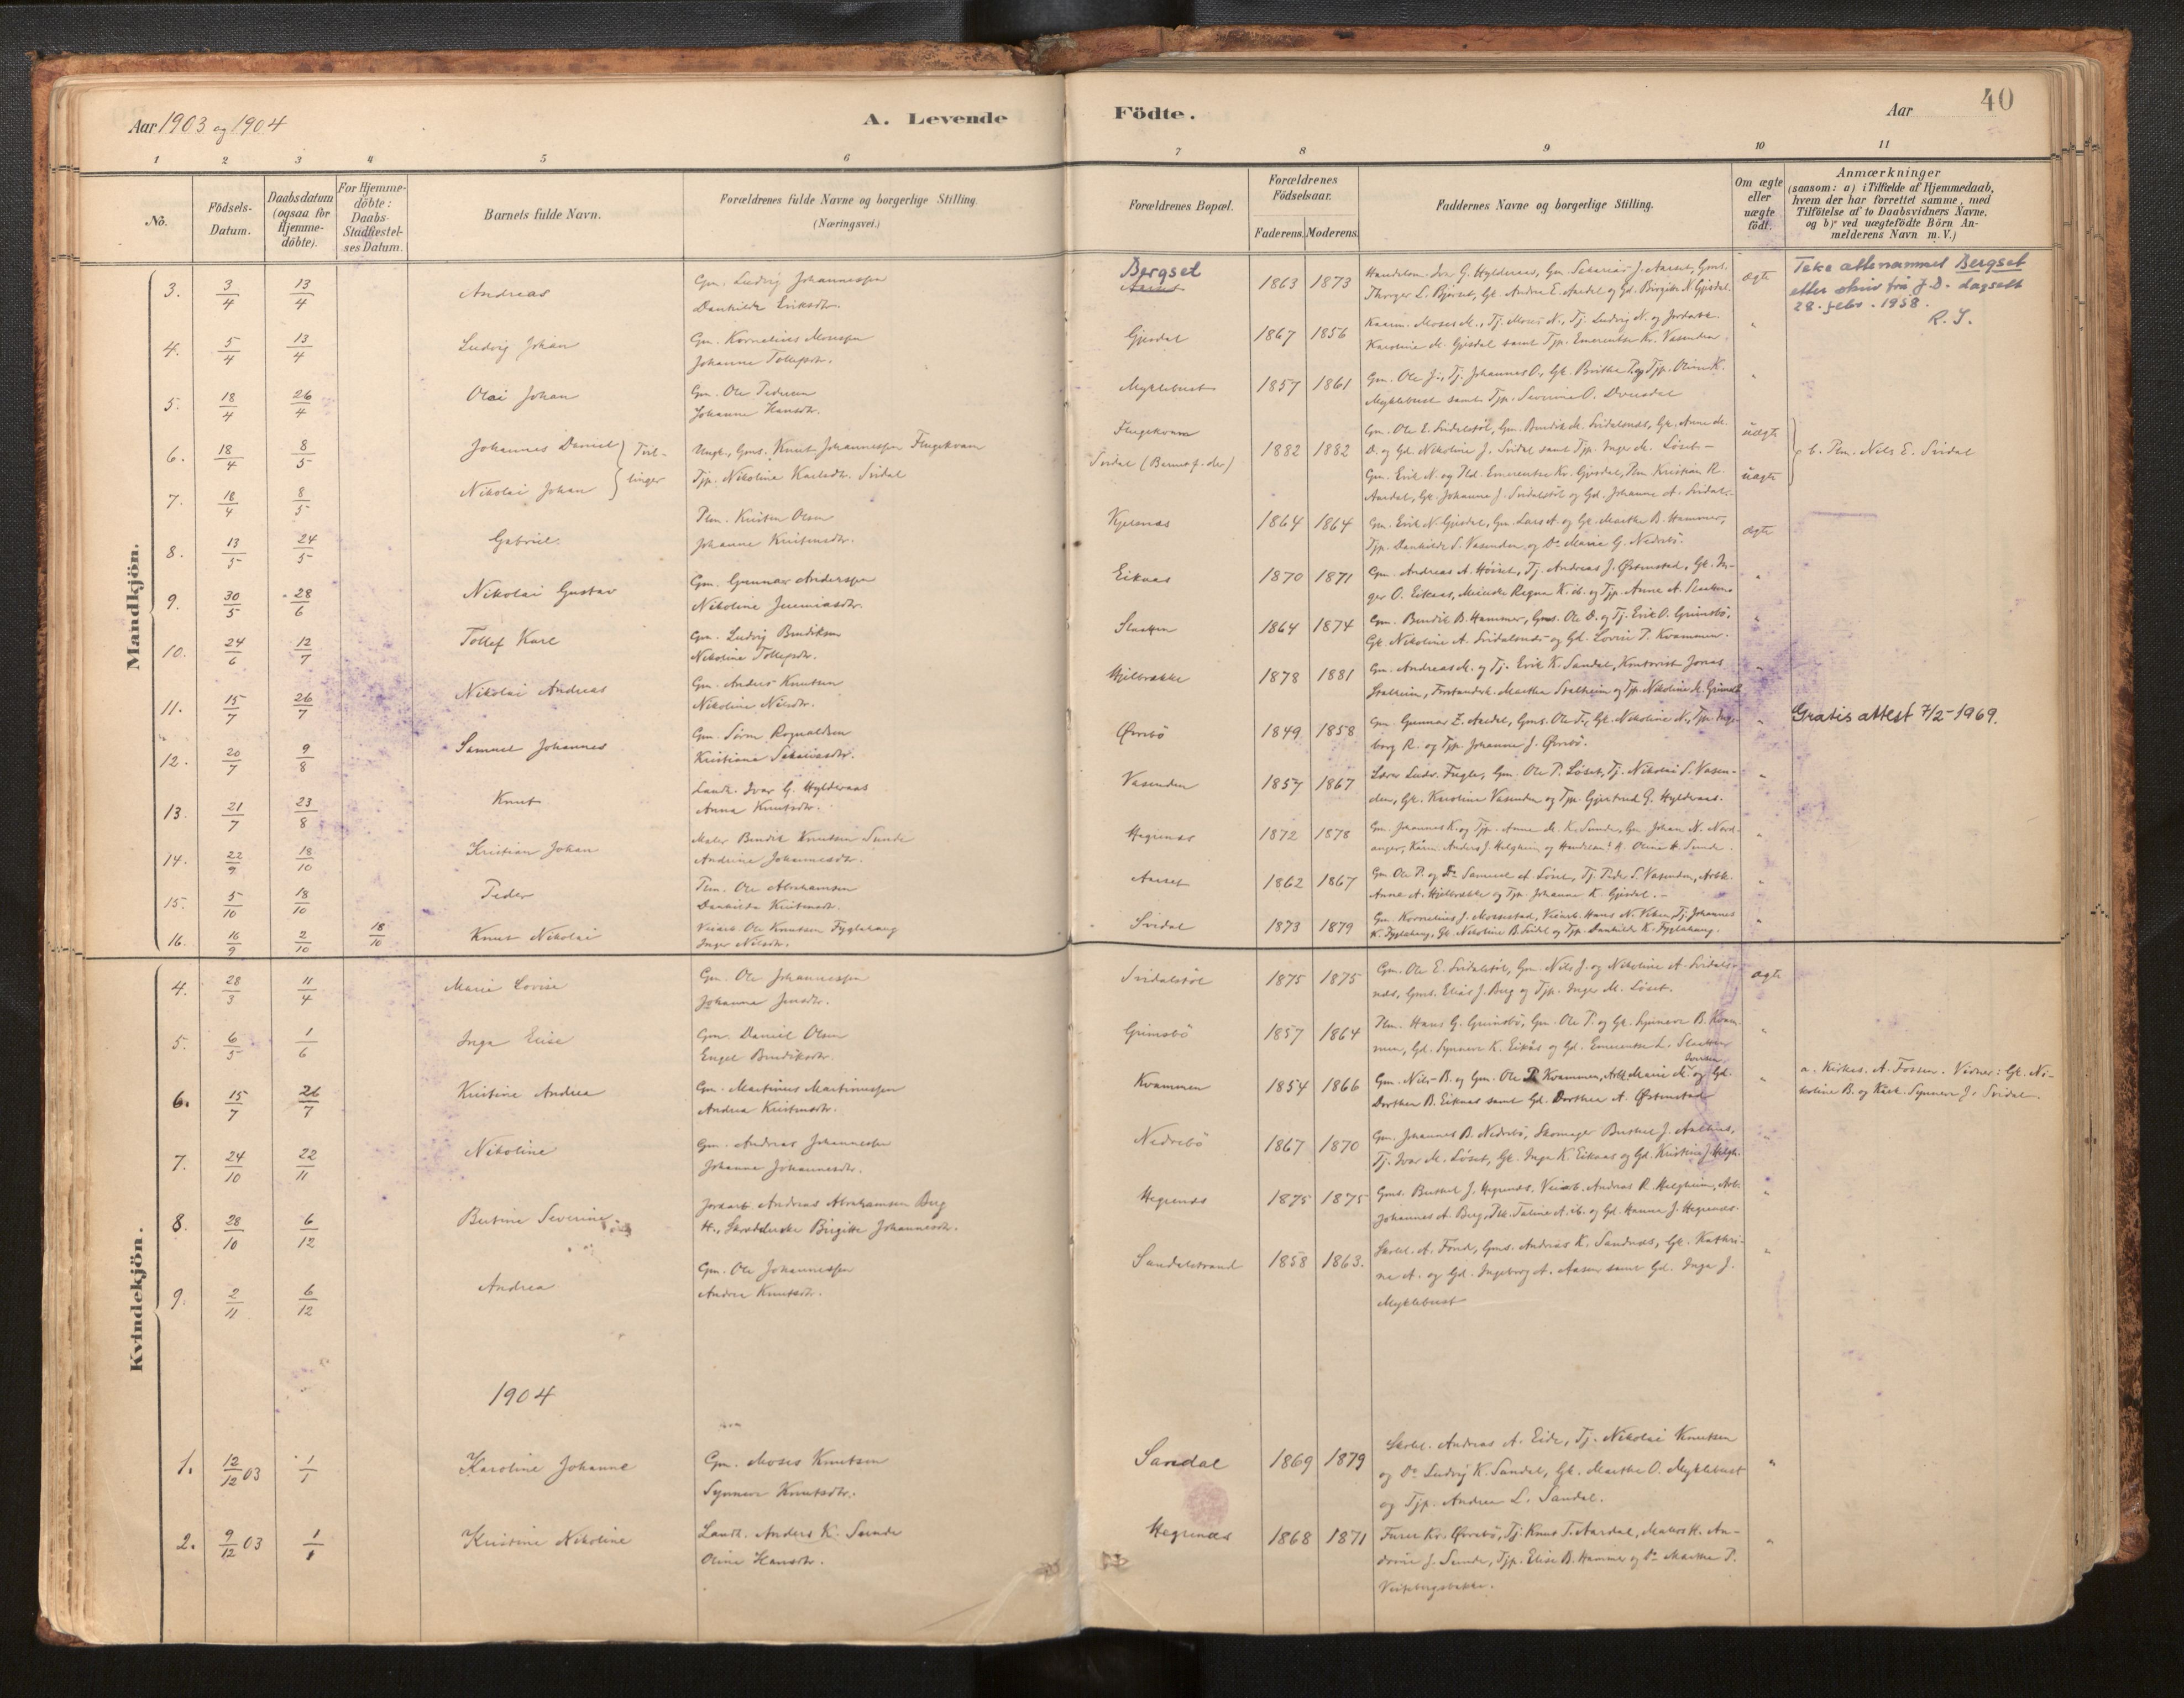 Aar 1903 og 1904
A. Levende
Födte.
Aar
40
1 2 3 4 5 6 7 8 9 10 11
No.
Födsels-
Datum.
Daabsdatum
(ogsaa for
Hjemme-
döbte).
For Hjemme-
döbte:
Daabs-
Stadfæstel-
ses Datum.
Barnets fulde Navn.
Forældrenes fulde Navne og borgerlige Stilling.
(Næringsvei.)
Forældrenes Bopæl.
Forældrenes
Födselsaar.
Faderens. Moderens.
Faddernes Navne og borgerlige Stilling.
Om ægte
eller
uægte
födt.
Anmærkninger
(saasom: a) i Tilfælde af Hjemmedaab,
hvem der har forrettet samme, med
Tilföielse af to Daabsvidners Navne,
og b) ved uægtefödte Börn An-
melderens Navn m. V.)
Mandkjön.
3. 3/4 13/4 Andreas
Gm. Ludvig Johannessen
Dankilde Eriksdtr.
Bergset
Aarset
1863 1873
Handelsm. Ivar G. Hylderaas, Gm. Sakarias J. Aarset, Gms.
Thorger L. Bjørset, Gk. Andrea E. Aardal og Gd. Birgitte N. Gjesdal.
ægte
Teke ættenamnet Bergset
etter skriv frå J.D. dagsett
28. febr. 1958.
R. S.
4. 5/4 13/4 Ludvig Johan
Gm. Kornelius Mosessen
Johanne Tollefsdtr.
Gjesdal 1867 1856
Kaarm. Moses M., Tj. Moses N., Tj. Ludvig N. og Jordarb.
Karoline M. Gjesdal samt Tjp. Emerentse Kr. Vasenden.
"
5. 18/4 26/4 Olai Johan
Gm. Ole Pedersen
Johanne Hansdtr.
Myklebust 1857 1861
Gm. Ole J., Tj. Johannes O., Gk. Brithe P. og Tjp. Oline K.
Myklebust samt Tjp. Severine O. Dvergdal
"
6. 18/4 8/5 Johannes Daniel } Tvil-
7. 18/4 8/5 Nikolai Johan } linger
Ungk., Gms. Knut Johannessen Flugekvam
Tjp. Nikoline Karlsdtr. Svidal
Flugekvam
Svidal (Barnet f. der)
1882 1882
Gm. Ole E. Svidalstøl, Gm. Bendik M. Svidalsnæs, Gk. Anne M.
O. og Gd. Nikoline J. Svidal samt Tjp. Inger M. Løset.—
Gm. Erik N. og Pld. Emerentse Kr. Gjesdal, Plm. Kristian R.
Aardal, Gk. Johanne J. Svidalstøl og Gd. Johanne A. Svidal.
uægte
uægte
b. Plm. Nils E. Svidal
8. 13/5 24/5 Gabriel.
Plm. Kristen Olsen
Johanne Kristensdtr.
Kjelsnæs 1864 1864
Gm. Erik N. Gjesdal, Gm. Lars A. og Gk. Marthe B. Hammer,
Tjp. Dankilde S. Vasenden og Do Marie G. Nedrebø.
ægte
9. 30/5 28/6 Nikolai Gustav
Gm. Gunnar Anderssen
Nikoline Jeremiasdtr.
Eikaas 1870 1871
Gm. Andreas A. Høiset, Tj. Andreas J. Østenstad, Gk. In-
ger O. Eikaas, Meierske Ragna K. ib. og Tjp. Anne A. Slaatten
"
10. 24/6 12/7 Tollef Karl
Gm. Ludvig Bendiksen
Nikoline Tollefsdtr.
Slaatten 1864 1874
Gm. Bendik B. Hammer, Gms. Ole D. og Tj. Erik O. Grimsbø,
Gk. Nikoline A. Svidalsnæs og Gd. Lovise P. Kvammen.
"
11. 15/7 26/7 Nikolai Andreas
Gm. Anders Knutsen
Nikoline Nilsdtr.
Hjelbrække 1878 1881
Gm. Andreas M. og Tj. Erik K. Sandal, Kontorist Jonas
Stalheim, Forstandersk. Marthe Stalheim og Tjp. Nikoline M. Grimsb.
"
12. 20/7 9/8 Samuel Johannes
Gm. Søren Rognaldsen
Kristiane Sakariasdtr.
Øvrebø 1849 1858
Gm. Gunnar E. Aardal, Gms. Ole T., Gk. Nikoline N., Tjp. Inge-
borg R. og Tjp. Johanne J. Øvrebø.
"
Gratis attest 7/2-1969.
13. 21/7 23/8 Knut
Landh. Ivar G. Hylderaas
Anna Knutsdtr.
Vasenden 1857 1867
Lærer Ludv. Fugle, Gm. Ole P. Løset, Tj. Nikolai S. Vasen-
den, Gk. Karoline Vasenden og Tjp. Gjertrud G. Hylderaas.
"
14. 22/9 18/10 Kristian Johan
Maler Bendik Knutsen Sunde
Andrine Johannesdtr.
Hegrenæs 1872 1878
Gm. Johannes K. og Tjp. Anne M. K. Sunde, Gm. Johan N. Nord-
anger, Kårm. Anders J. Helgheim og Handelsm.s K. Oline H. Sunde.
"
15. 5/10 18/10 Peder
Plm. Ole Abrahamsen
Dankilde Kristensdtr.
Aarset 1862 1867
Gm. Ole P. og Do Samuel A. Løset, Tj. Peder S. Vasenden, Arbk.
Anna A. Hjelbrække og Tjp. Johanne K. Gjesdal.—
"
16. 16/9 2/10 18/10 Knut Nikolai
Veiarb. Ole Knutsen Fyglehaug
Inger Nilsdtr.
Svidal 1873 1879
Gm. Kornelius J. Moesestad, Veiarb. Hans N. Viken, Tj. Johannes
K. Fyglehaug, Gk. Nikoline B. Svidal og Tjp. Dankilde K. Fyglehaug.
"
Kvindekjön.
4. 28/3 11/4 Marie Lovise
Gm. Ole Johannessen
Johanne Jensdtr.
Svidalstøl 1875 1875
Gm. Ole E. Svidalstøl, Gm. Nils J. og Nikoline A. Svidals-
næs, Gms. Elias J. Berg og Tjp. Inger M. Løset.
ægte
5. 6/5 1/6 Inga Elise
Gm. Daniel Olsen
Engel Bendiksdtr.
Grimsbö 1857 1864
Plm. Hans G. Grimsbö, Gm. Ole P. og Gk. Synneve B. Kvam-
men, Gd. Synneve K. Eikås og Gd. Emerentse L. Slaatten
"
6. 15/7 26/7 Kristine Andrea
Gm. Martinus Martinussen
Andrea Kristensdtr.
Kvammen 1854 1866
Gm. Nils B. og Gm. Ole P. Kvammen, Arbk. Marie M. og Gd.
Dorthea B. Eikaas samt Gd. Dorthea A. Østenstad
"
a. Kirkes. A. Fossen. Vidner: Gk. Ni-
koline B. og Kårk. Synneve J. Svidal.
7. 24/10 22/11 Nikoline
Gm. Andreas Johannessen
Johanne Johannesdtr.
Nedrebö 1867 1870
Gm. Johannes B. Nedrebö, Skomager Bertel J. Aalhus,
Tj. Ivar M. Löset, Gk. Inga K. Eikaas og Gd. Kristine J. Helgh.
"
8. 28/10 6/12 Bertine Severine
Jordarb. Andreas Abrahamsen Berg
H., Skrædderske Birgitte Johannesdtr.
Hegrenæs 1875 1875
Gms. Bertel J. Hegrenæs, Veiarb. Andreas R. Helgheim, Arb.
Johannes A. Berg, Plk. Taline A. ib. og Gd. Hanne J. Hegrenæs.
"
9. 2/11 6/12 Andrea
Gm. Ole Johannessen
Andrea Knutsdtr.
Sandalstrand 1858 1863.
Skolel. A. Förde, Gms. Andreas K. Sandnæs, Gk. Kathri-
ne A. og Gd. Ingeborg A. Aasen samt Gd. Inga J.
Myklebust
"
1904
1. 12/12 03 1/1 Karoline Johanne
Gm. Moses Knutsen
Synneve Knutsdtr.
Sandal 1869 1879
Skolel. Andreas A. Eide, Tj. Nikolai Knutsen
og Do Ludvig K. Sandal, Gk. Marthe O. Myklebust
og Tjp. Andrea L. Sandal.
"
2. 9/12 03 1/1 Kristine Nikoline
Landh. Anders K. Sunde
Oline Hansdtr.
Hegrenæs 1868 1871
Furer Kr. Øvrebö, Tj. Knut T. Aardal, Malers H. An-
drine J. Sunde, Tjp. Elise B. Hammer og Do Marthe P.
Veitebergsbakke.
"